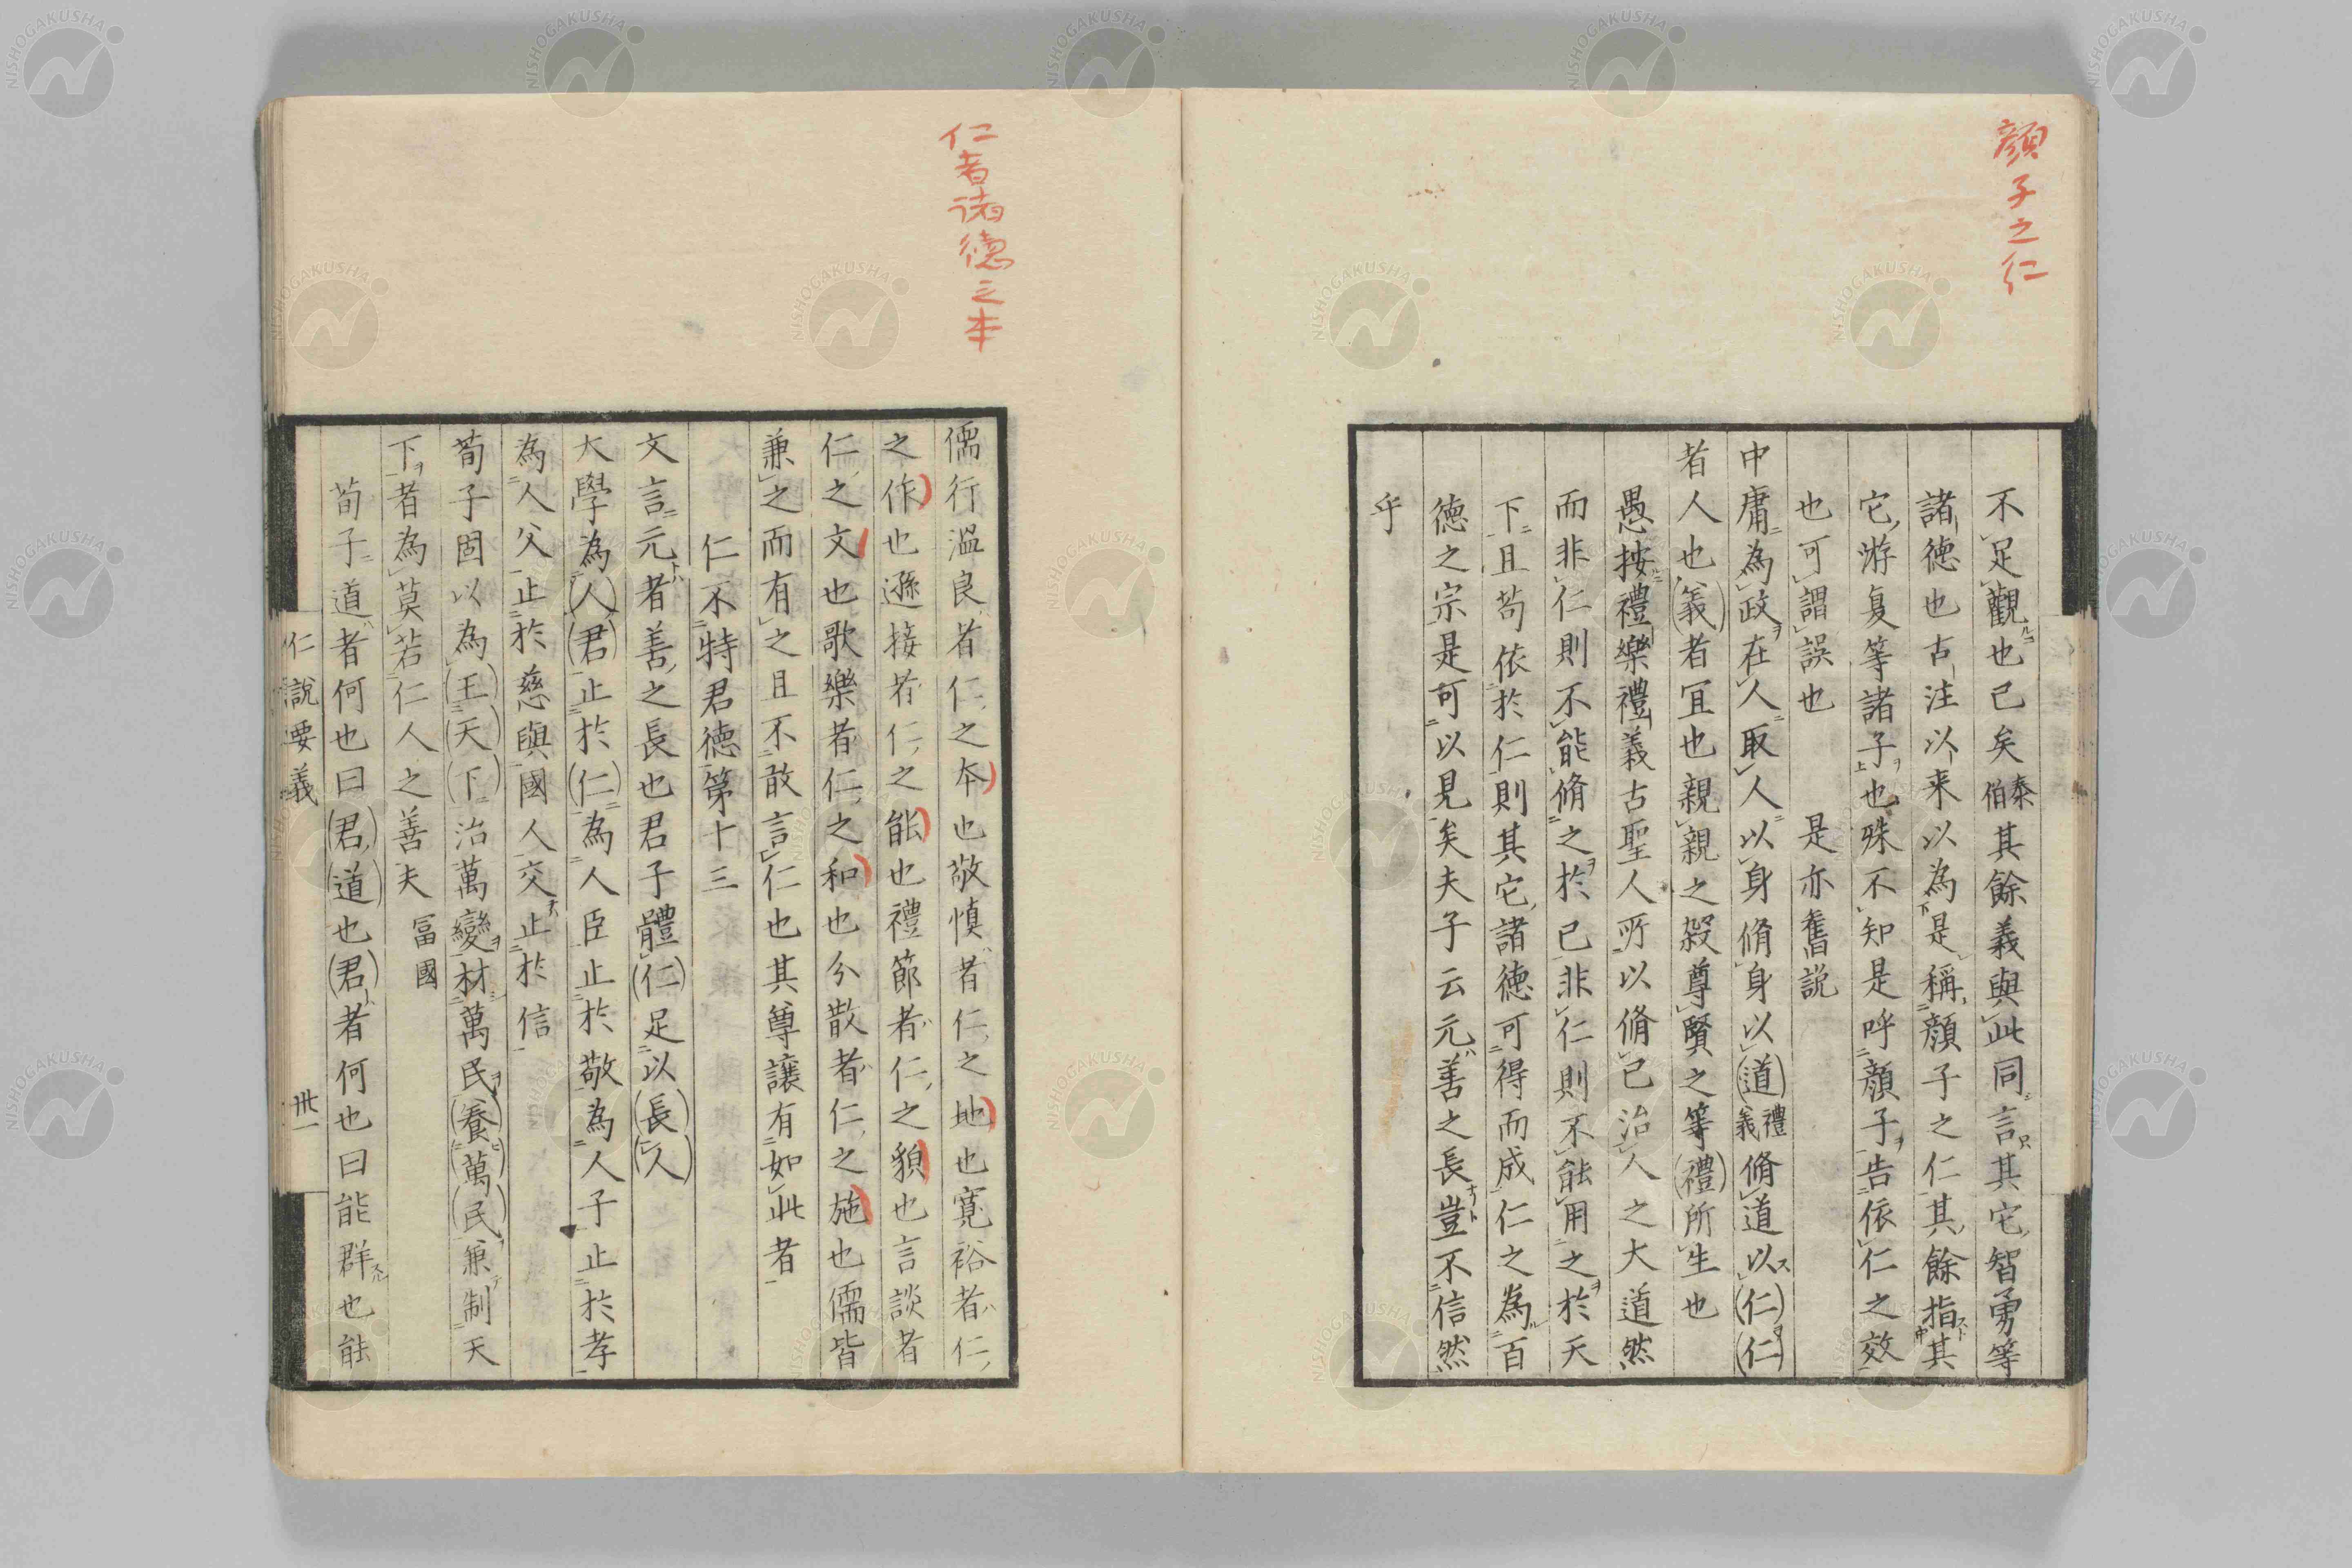 顔子之仁
不足觀也已矣泰伯其餘義與此同言其它智勇等
諸德也古注以來以為是稱顔子之仁其餘指其
它游夏等諸子也殊不知是呼顔子告依仁之效
也可謂誤也　是亦舊説
中庸為政在人取人以身脩身以道禮義脩道以仁仁
者人也義者宜也親親之殺尊賢之等禮所生也
愚按禮樂禮義古聖人所以脩己治人之大道然
而非仁則不能脩之於己非仁則不能用之於天
下且苟依於仁則其它諸德可得而成仁之為百
德之宗是可以見矣夫子云元善之長豈不信然
乎
仁者諸德之本
儒行溫良者仁之本也敬慎者仁之地也寬裕者仁
之作也遜接者仁之能也禮節者仁之貌也言談者
仁之文也歌樂者仁之和也分散者仁之施也儒皆
兼之而有之且不敢言仁也其尊讓有如此者
仁不特君德第十三
文言元者善之長也君子體仁足以長人
大學為人君止於仁為人臣止於敬為人子止於孝
為人父止於慈與國人交止於信
荀子固以為王天下治萬變材萬民養萬民兼制天
下者為莫若仁人之善夫　冨國
荀子道者何也曰君道也君者何也曰能群也能
仁說要義
卅一
NISHOGAKUSHA